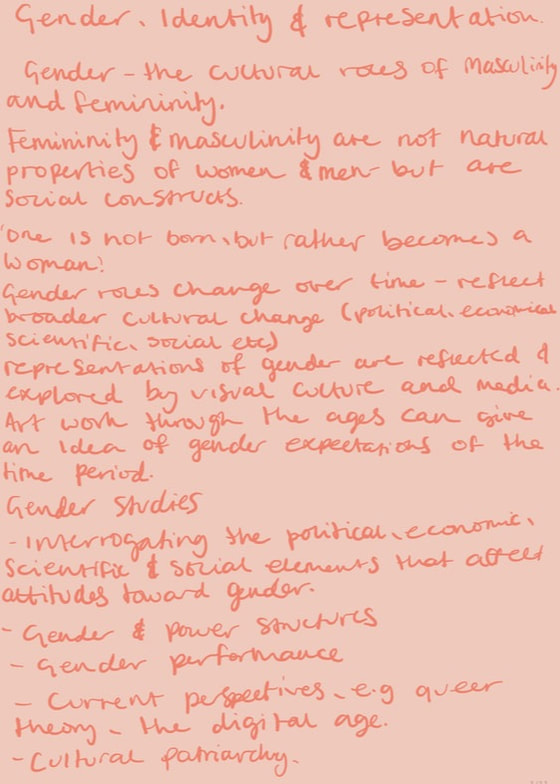 Gender, Identity & representation.
Gender - the cultural roles of Masculinity
and femininity.
Femininity & masculinity are not natural
properties of women & men - but are
social constructs.
'one is not born, but rather becomes a
woman.'
Gender roles change over time - reflect
broader cultural change (political, economical
scientific, social etc)
representations of gender are reflected &
explored by visual culture and media.
Art work through the ages can give
an idea of gender expectations of the
time period.
Gender studies
- Interrogating the political, economic,
scientific & social elements that affect
attitudes toward gender.
- Gender & power structures
- Gender performance
- Current perspectives, e.g queer
theory, the digital age.
- Cultural patriarchy.